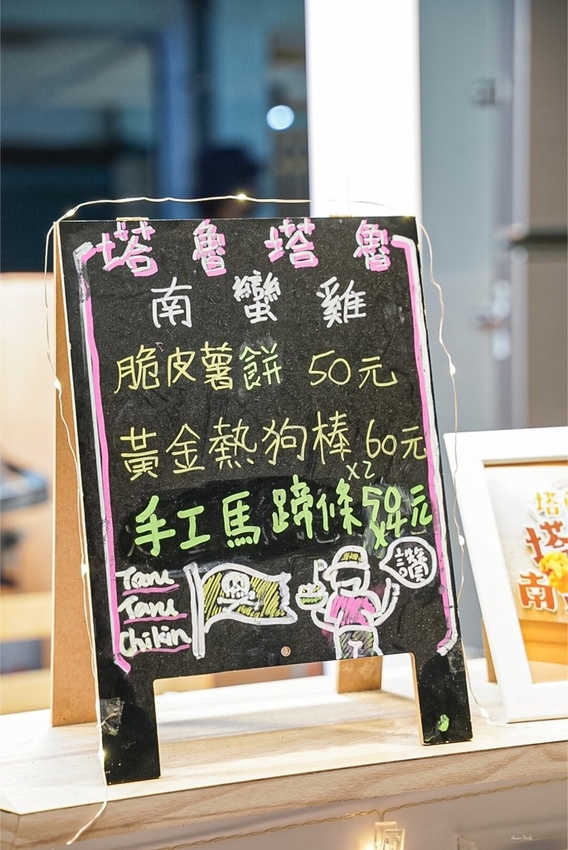 塔魯塔魯
南蠻雞
脆皮薯餅 50元
黃金熱狗棒 60元
x2
手工馬蹄條 50元
x4
Taru
Taru
Chikin
讚
塔
南